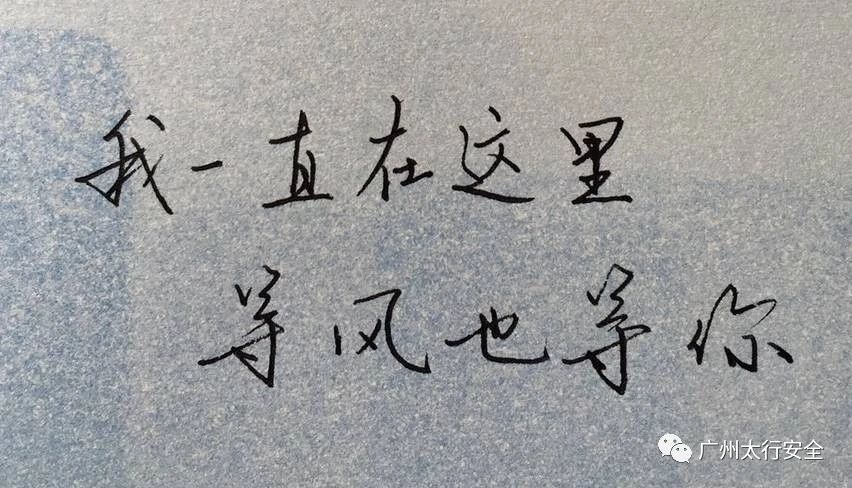 我一直在这里
等风也等你
广州太行安全